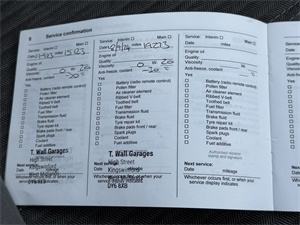 8 Service confirmation
Service: Interim Main
Date miles
Engine oil
Quality
Viscosity 0 - 20
Anti-freeze, coolant
Battery (radio remote control)
Pollen filter
Air cleaner element
Ribbed V-belt
Toothed belt
Fuel filter
Transmission fluid
Brake fluid
Tyre repair kit
Brake pads front / rear
Spark plugs
Coolant
Fuel additive
T. Wall Garages
High Street
Kingswinford
DY6 8XB
Next service:
Date mileage
Whichever occurs first, or when your
service display indicates
Service: Interim Main
Date miles 19213
Engine oil
Quality
Viscosity 0 - 20
Anti-freeze, coolant
Battery (radio remote control)
Pollen filter
Air cleaner element
Ribbed V-belt
Toothed belt
Fuel filter
Transmission fluid
Brake fluid
Tyre repair kit
Brake pads front / rear
Spark plugs
Coolant
Fuel additive
T. Wall Garages
High Street
Kingswinford
West Midlands
DY6 8XB
Next service:
Date mileage
Whichever occurs first, or when your
service display indicates
Service: Interim Main
Date miles
Engine oil
Quality
Viscosity
Anti-freeze, coolant °C
Battery (radio remote control)
Pollen filter
Air cleaner element
Ribbed V-belt
Toothed belt
Fuel filter
Transmission fluid
Brake fluid
Tyre repair kit
Brake pads front / rear
Spark plugs
Coolant
Fuel additive
Authorised repairer
stamp and signature
Next service:
Date mileage
Whichever occurs first, or when your
service display indicates